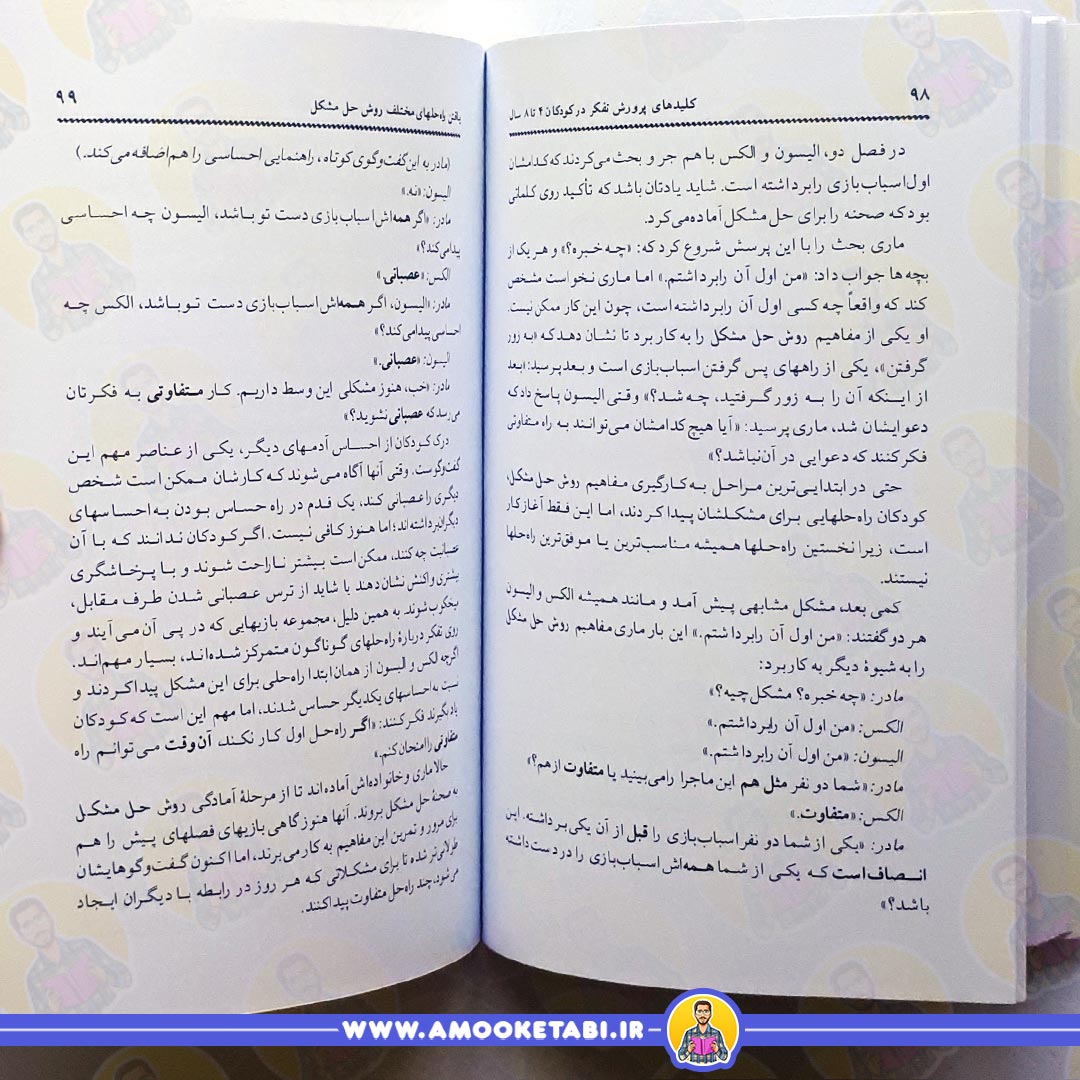 ۹۸
کلیدهای پرورش تفکر در کودکان ۴ تا ۸ سال
در فصل دو، الیسون و الکس با هم جر و بحث می‌کردند که کدامشان
اول اسباب‌بازی را برداشته است. شاید یادتان باشد که تأکید روی کلماتی
بود که صحنه را برای حل مشکل آماده می‌کرد.
ماری بحث را با این پرسش شروع کرد که: «چه خبره؟» و هر یک از
بچه‌ها جواب داد: «من اول آن را برداشتم.» اما ماری نخواست مشخص
کند که واقعاً چه کسی اول آن را برداشته است، چون این کار ممکن نیست.
او یکی از مفاهیم روش حل مشکل را به کار برد تا نشان دهد که «به زور
گرفتن»، یکی از راههای پس گرفتن اسباب‌بازی است و بعد پرسید: «بعد
از اینکه آن را به زور گرفتید، چه شد؟» وقتی الیسون پاسخ داد که
دعوایشان شد، ماری پرسید: «آیا هیچ‌کدامشان می‌توانند به راه متفاوتی
فکر کنند که دعوایی در آن نباشد؟»
حتی در ابتدایی‌ترین مراحل به کارگیری مفاهیم روش حل مشکل،
کودکان راه‌حلهایی برای مشکلشان پیدا کردند، اما این فقط آغاز کار
است، زیرا نخستین راه‌حلها همیشه مناسب‌ترین یا موفق‌ترین راه‌حلها
نیستند.
کمی بعد، مشکل مشابهی پیش آمد و مانند همیشه الکس و الیسون
هر دو گفتند: «من اول آن را برداشتم.» این بار ماری مفاهیم روش حل مشکل
را به شیوهٔ دیگر به کار برد:
مادر: «چه خبره؟ مشکل چیه؟»
الکس: «من اول آن رابرداشتم.»
الیسون: «من اول آن رابرداشتم.»
مادر: «شما دو نفر مثل هم این ماجرا را می‌بینید یا متفاوت از هم؟»
الکس: «متفاوت.»
مادر: «یکی از شما دو نفر اسباب‌بازی را قبل از آن یکی برداشته. این
انصاف است که یکی از شما همه‌اش اسباب‌بازی را در دست داشته
باشد؟»
۹۹
یافتن راه‌حلهای مختلف روش حل مشکل
(مادر به این گفت‌وگوی کوتاه، راهنمایی احساسی را هم اضافه می‌کند.)
الیسون: «نه.»
مادر: «اگر همه‌اش اسباب‌بازی دست تو باشد، الیسون چه احساسی
پیدا می‌کند؟»
الکس: «عصبانی.»
مادر: «الیسون، اگر همه‌اش اسباب‌بازی دست تو باشد، الکس چه
احساسی پیدا می‌کند؟»
الیسون: «عصبانی.»
مادر: «خب، هنوز مشکلی این وسط داریم. کار متفاوتی به فکرتان
می‌رسد که عصبانی نشوید؟»
درک کودکان از احساس آدمهای دیگر، یکی از عناصر مهم این
گفت‌وگوست. وقتی آنها آگاه می‌شوند که کارشان ممکن است شخص
دیگری را عصبانی کند، یک قدم در راه حساس بودن به احساسهای
دیگران برداشته‌اند؛ اما هنوز کافی نیست. اگر کودکان ندانند که با آن
عصبانیت چه کنند، ممکن است بیشتر ناراحت شوند و با پرخاشگری
بیشتری واکنش نشان دهند یا شاید از ترس عصبانی شدن طرف مقابل،
میخکوب شوند. به همین دلیل، مجموعه بازیهایی که در پی آن می‌آیند و
روی تفکر دربارهٔ راه‌حلهای گوناگون متمرکز شده‌اند، بسیار مهم‌اند.
اگرچه الکس و الیسون از همان ابتدا راه‌حلی برای این مشکل پیدا کردند و
نسبت به احساسهای یکدیگر حساس شدند، اما مهم این است که کودکان
یاد بگیرند فکر کنند: «اگر راه‌حل اول کار نکند، آن‌وقت می‌توانم راه
متفاوتی را امتحان کنم.»
حالا ماری و خانواده‌اش آماده‌اند تا از مرحلهٔ آمادگی روش حل مشکل
به صحنهٔ حل مشکل بروند. آنها هنوز گاهی بازیهای فصلهای پیش را هم
برای مرور و تمرین این مفاهیم به کار می‌برند، اما اکنون گفت‌وگوهایشان
طولانی‌تر شده تا برای مشکلاتی که هر روز در رابطه با دیگران ایجاد
می‌شود، چند راه‌حل متفاوت پیدا کنند.
WWW.AMOOKETABI.IR